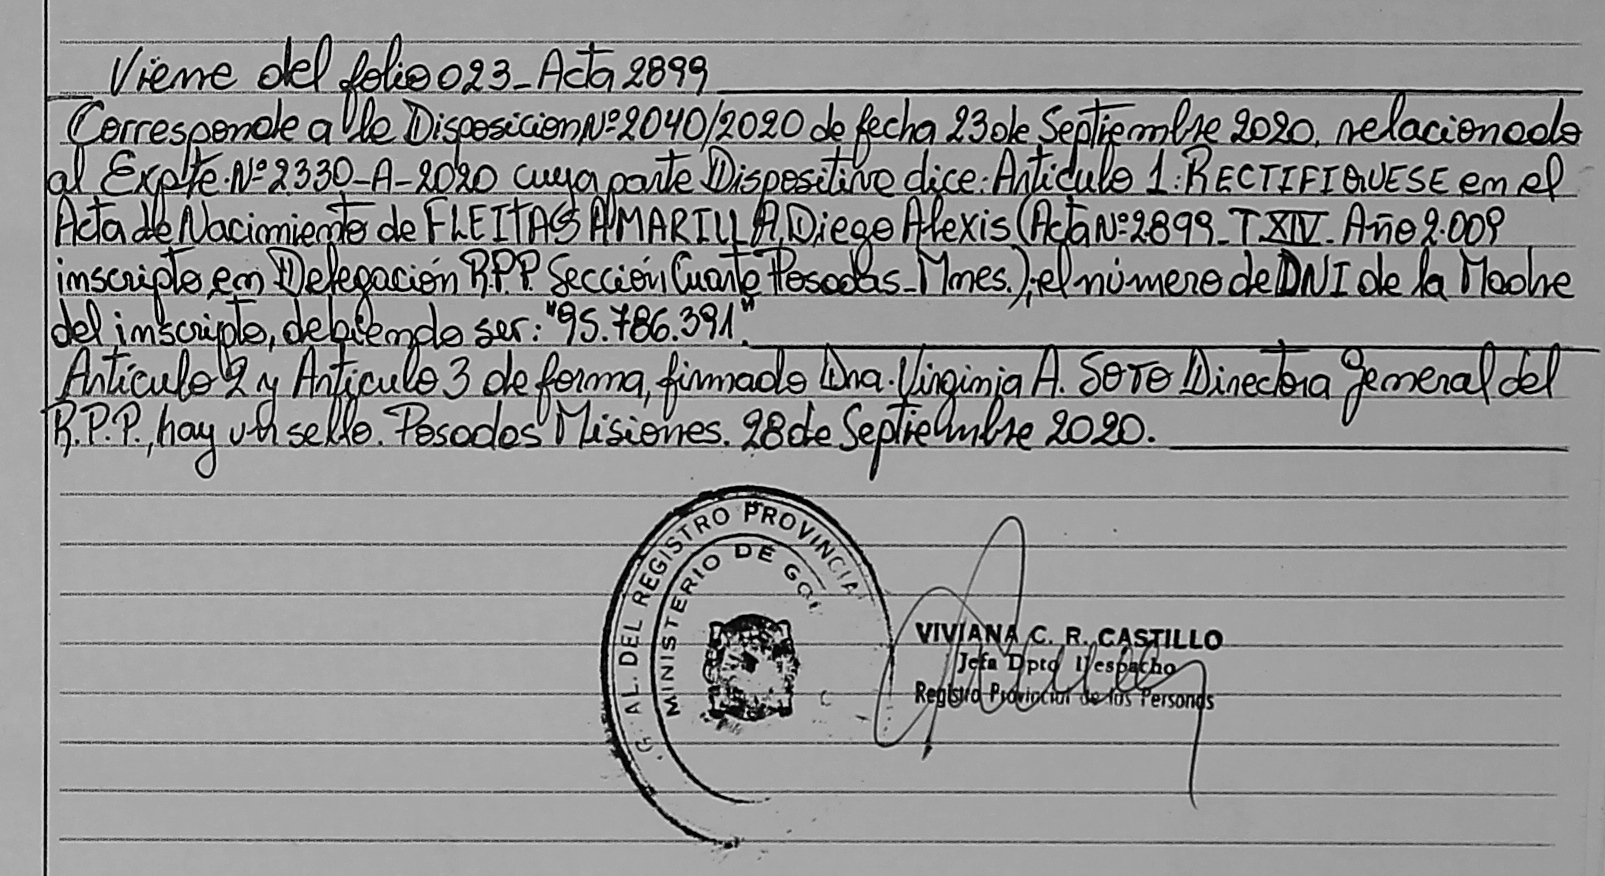 Viene del folio 023_Acta 2899
Corresponde a la Disposicion Nº 2040/2020 de fecha 23 de Septiembre 2020, relacionado
al Expte. Nº 2330_A_2020 cuya parte Dispositiva dice: Articulo 1: RECTIFIQUESE en el
Acta de Nacimiento de FLEITAS AMARILLA, Diego Alexis (Acta Nº: 2899_T XIV. Año 2.009
inscripto en Delegación R.P.P. Sección Cuarta Posadas_Mnes.); el número de DNI de la Madre
del inscripto, debiendo ser: "95.786.391".
Artículo 2 y Artículo 3 de forma, firmado Dra. Virginia A. SOTO Directora General del
R.P.P., hay un sello. Posadas Misiones. 28 de Septiembre 2020.
G AL. DEL REGISTRO PROVINCIA
MINISTERIO DE GO
VIVIANA C. R. CASTILLO
Jefa Dpto Despacho
Registro Provincial de las Personas